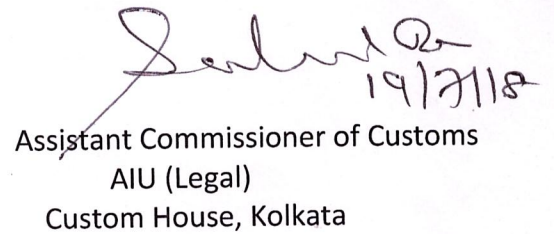 19/7/18
Assistant Commissioner of Customs
AIU (Legal)
Custom House, Kolkata